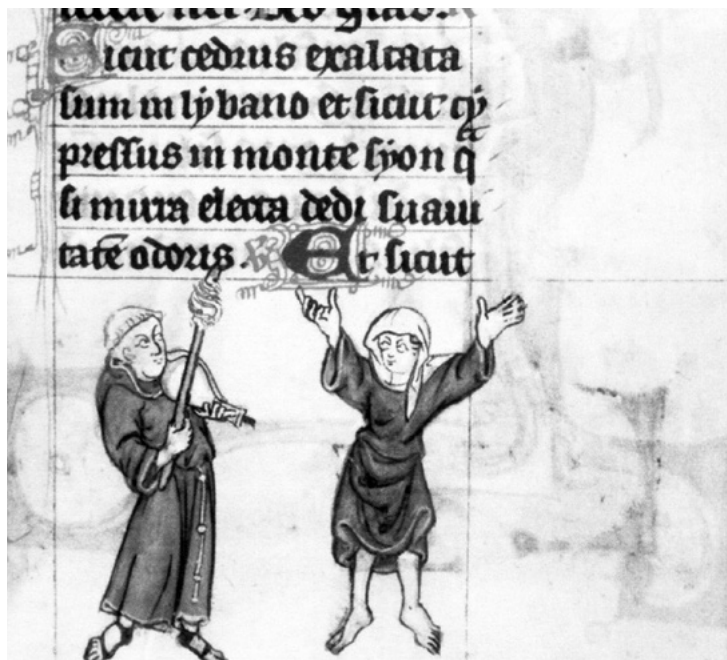 Sicut cedrus exaltata
sum in lybano et sicut cy
pressus in monte syon q̄
si mirra electa dedi suaui
tatē odoris. Et sicut